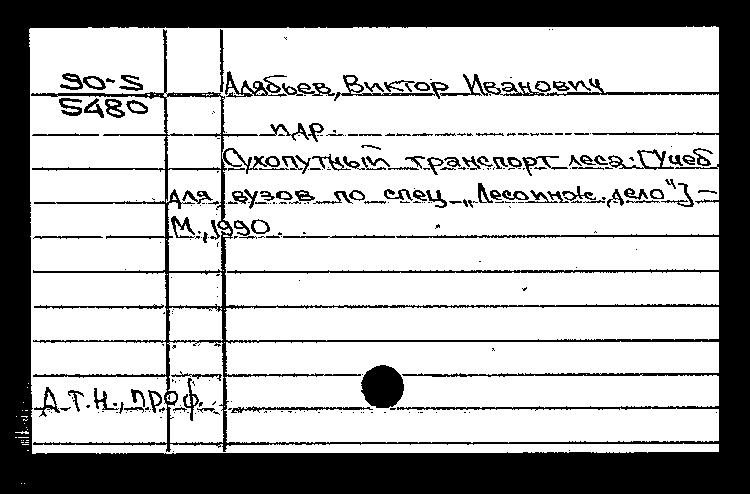 90-5
5480
Алябьев, Виктор Иванович
и др.
Сухопутный транспорт леса: [Учеб.
для вузов по спец. „Лесоинж. дело"] –
М., 1990.
Д.Т.Н., проф.